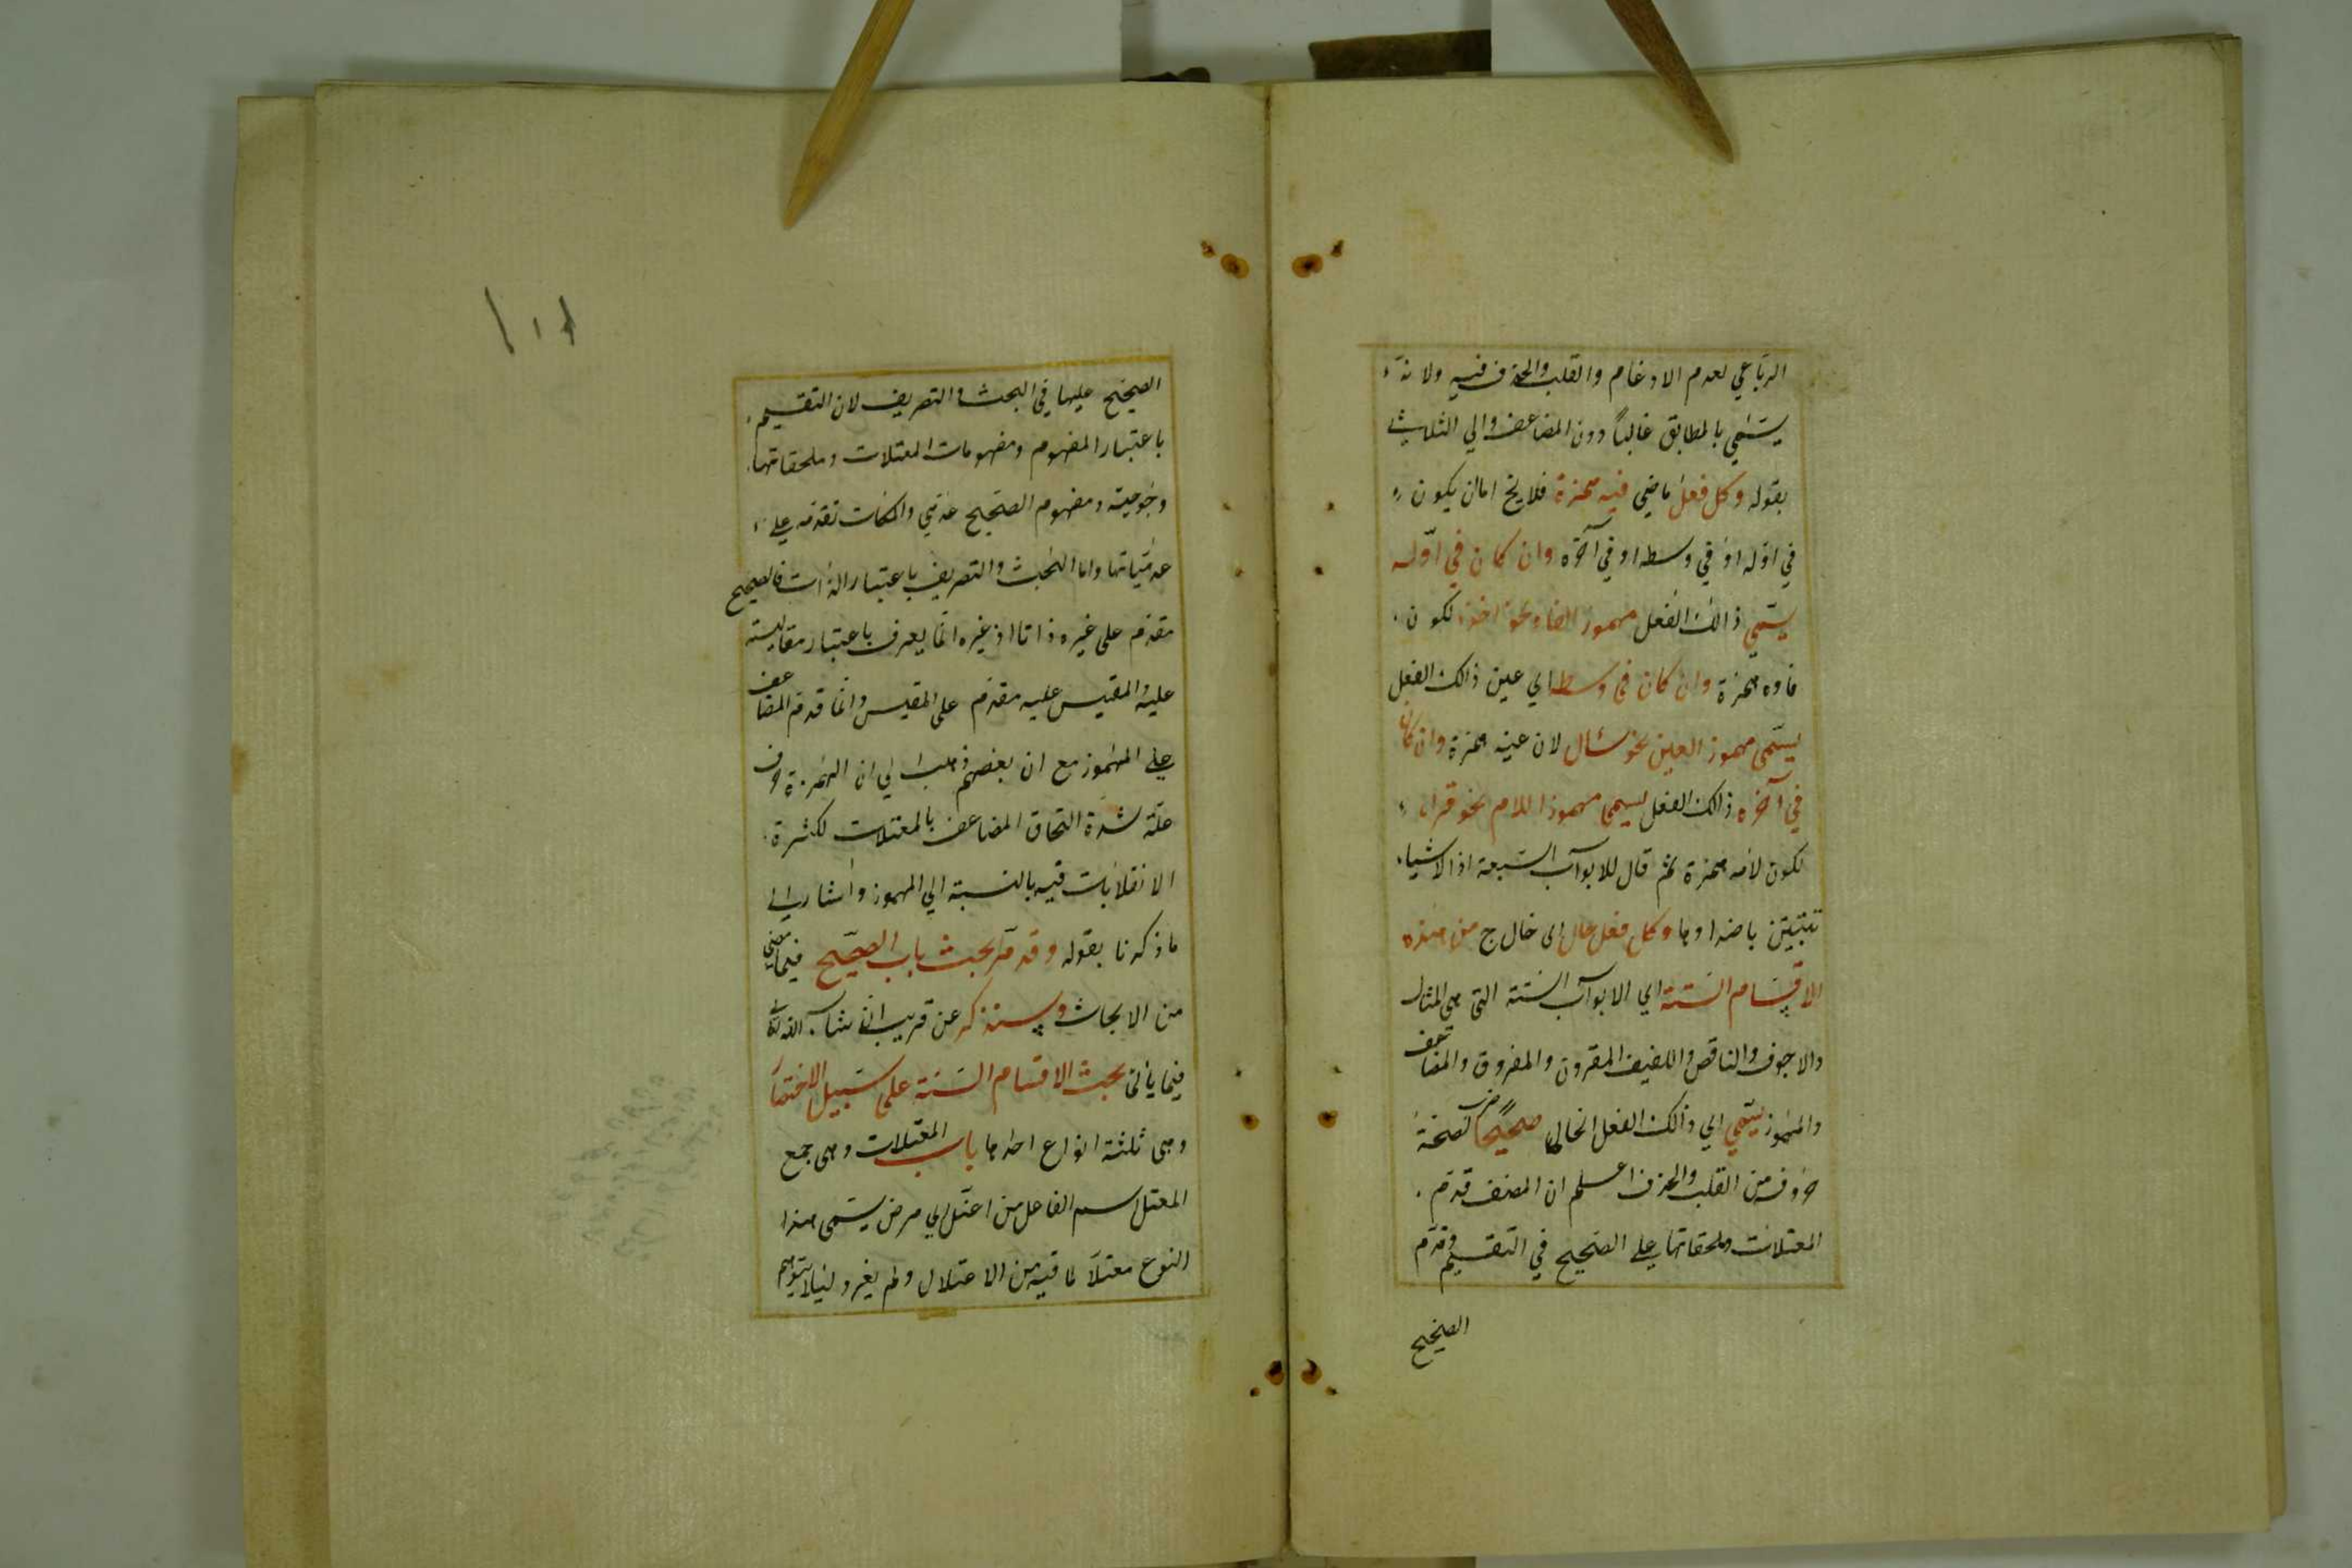 الرباعي لعدم الادغام والقلب والحذف فيه ولانه
يسمي بالمطابق غالباً دون المضاعف والي الثلاث
بقوله وكل فعل ماضي فيه همزة فلا يخ اما ان يكون
في اوّله او في وسطه او في آخره وان كان في اوّله
يسمّي ذالك الفعل مهموز الفا ونحو اخذ لكون
فاوه همزة وان كان في وسطه اي عين ذالك الفعل
يسمّى مهموز العين نحو سئال لان عينه همزة وان كان
في آخره ذالك الفعل يسمى مهموز اللام نحو قراء
لكون لامه همزة ثم قال للابواب السبعة اذ الاشياء
تتبيّن باضدادها وكل فعل خال اى خال ج من هذه
الاقسام الستة اي الابواب الستة التى هى المثال
والاجوف والناقص واللفيف المقرون والمفروق والمضاعف
والمهموز يسّمي اي ذالك الفعل الخالى صحيحاً لصحة
حروفه من القلب والحذف اعلم ان المصنف قدم
المعتلات وملحقاتها على الصحيح في التقسيم وقدّم
الصحيح
١٠١
الصحيح عليها في البحث والتصريف لان التقسيم
باعتبار المفهوم ومفهومات المعتلات وملحقاتها
وجودية ومفهوم الصحيح عدمي والملكات تقدم على
عدمياتها واما البحث والتصريف باعتبار الذات فالصحيح
مقدم على غيره ذاتا اذ غيره انما يعرف باعتبار مقايسته
عليه والمقيس عليه مقدم على المقيس وانما قدم المضاعف
على المهموز مع ان بعضهم ذهب الي ان الهمزة حرف
علة لشدة التحاق المضاعف بالمعتلات لكثرة
الانقلابات فيه بالنسبة الي المهموز واشار الى
ما ذكرنا بقوله وقد مّر بحث باب الصحيح فيما مضى
من الابحاث وسنذكر عن قريب انشاء الله تعالى
فيما يأتى بحث الاقسام الستة على سبيل الاختصار
وهى ثلثة انواع احدها باب المعتلات وهى جمع
المعتل اسم الفاعل من اعتّل اي مرض يسّمى هذا
النوع معتلاً لما فيه من الاعتلال ولم يغرد لئلا يتوهم